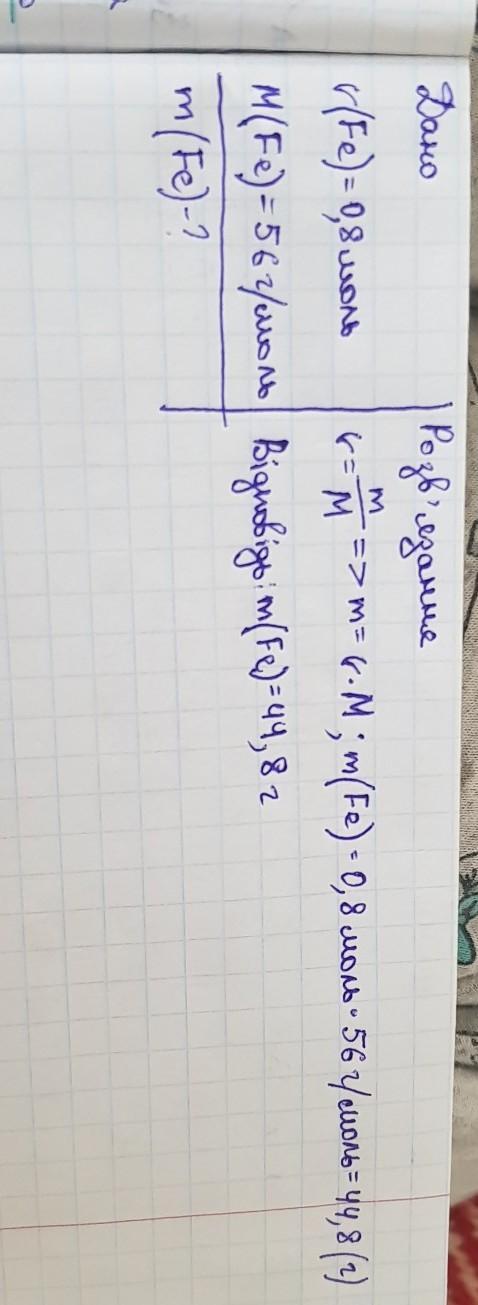 Дано
ν(Fe)=0,8моль
M(Fe)=56г/моль
m(Fe)-?
Розв'язання
ν=m/M => m=ν·M; m(Fe)=0,8моль·56г/моль=44,8(г)
Відповідь: m(Fe)=44,8г